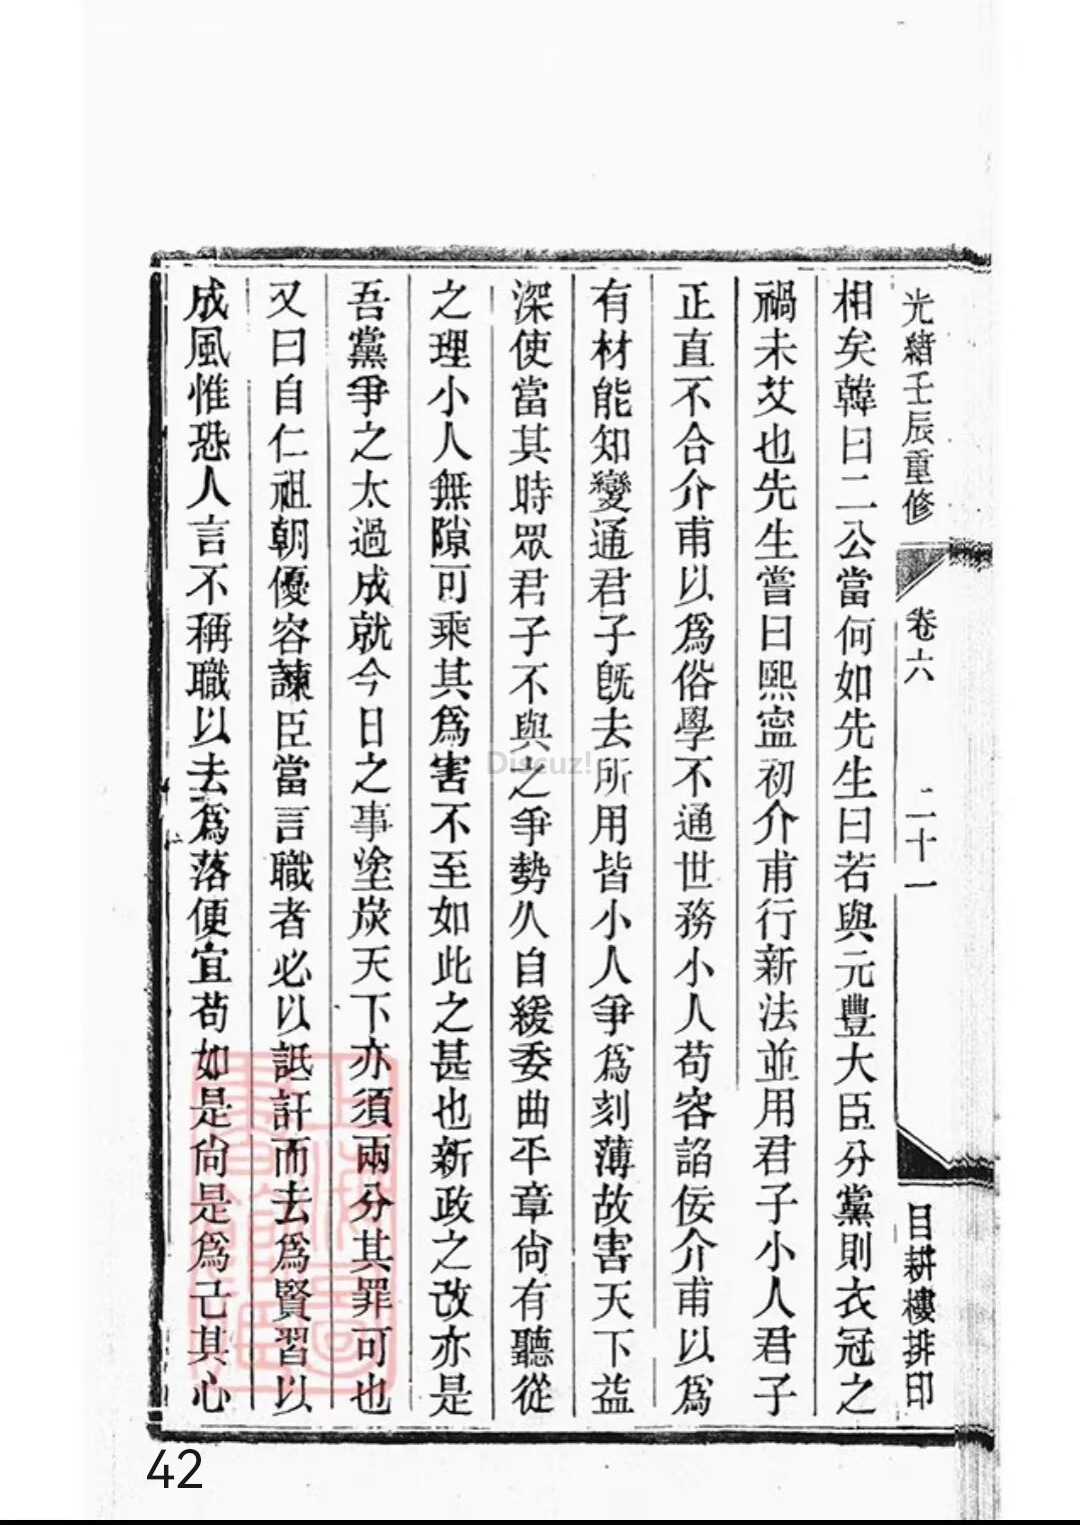 光緒壬辰重修 卷六 二十一 目耕樓排印
相矣韓曰二公當何如先生曰若與元豐大臣分黨則衣冠之
禍未艾也先生嘗曰熙寍初介甫行新法並用君子小人君子
正直不合介甫以爲俗學不通世務小人苟容諂佞介甫以爲
有材能知變通君子旣去所用皆小人爭爲刻薄故害天下益
深使當其時眾君子不與之爭勢久自緩委曲平章尙有聽從
之理小人無隙可乘其爲害不至如此之甚也新政之改亦是
吾黨爭之太過成就今日之事塗炭天下亦須兩分其罪可也
又曰自仁祖朝優容諫臣當言職者必以詆訐而去爲賢習以
成風惟恐人言不稱職以去爲落便宜苟如是尙是爲己其心
Discuz!
42